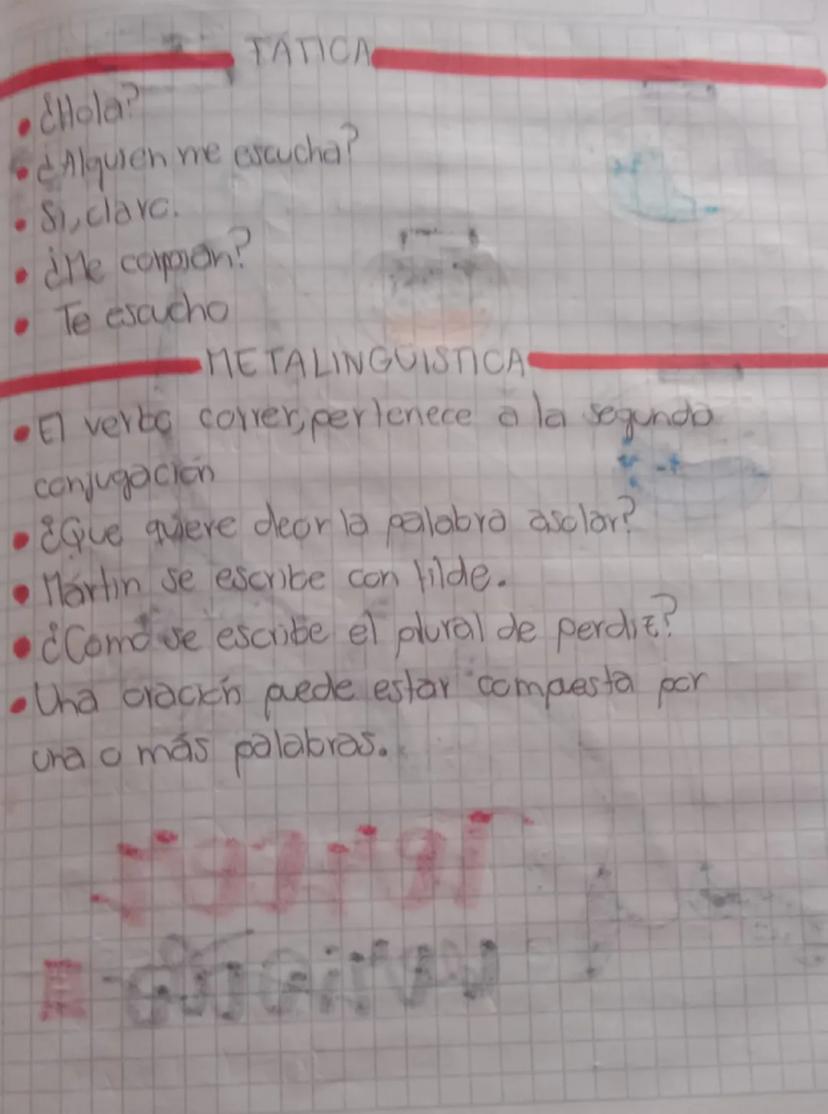 TATICA
• ¿Hola?
• ¿Alguien me escucha?
• Si, claro.
• ¿Me copian?
• Te escucho
METALINGUISTICA
• El verbo correr, pertenece a la segunda
conjugación
• ¿Que quiere decir la palabra asolar?
• Mártin se escribe con tilde.
• ¿Como se escribe el plural de perdiz?
• Una oración puede estar compuesta por
una o más palabras.